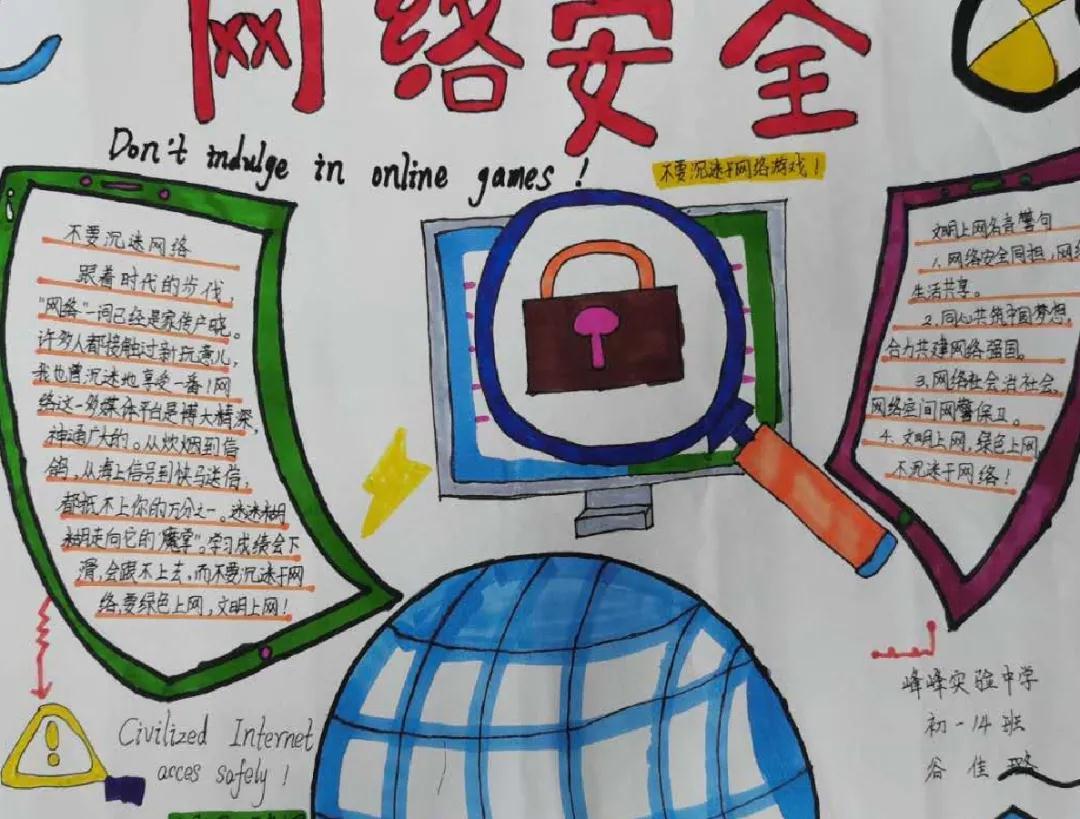 网络安全
Don't indulge in online games!
不要沉迷于网络游戏!
不要沉迷网络
跟着时代的步伐,
"网络"一词已经是家传户晓。
许多人都接触过新玩意儿,
我也曾沉迷地享受一番!网
络这一多媒体平台是博大精深,
神通广大的。从炊烟到信
鸽,从海上信号到快马送信,
都抵不上你的万分之一。迷迷糊
糊走向它的"魔掌"。学习成绩会下
滑,会跟不上去,而不要沉迷于网
络,要绿色上网,文明上网!
文明上网名言警句
1.网络安全同担,网络
生活共享。
2.同心共筑中国梦想,
合力共建网络强国。
3.网络社会法治社会,
网络空间网警保卫。
4.文明上网,绿色上网
不沉迷于网络!
Civilized Internet
acces safely!
峰峰实验中学
初一14班
谷佳